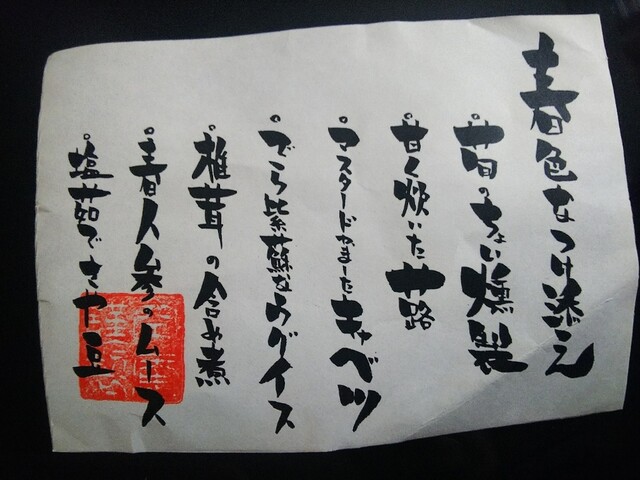 春色なつけ添え
。筍のちょい燻製
。甘く炊いた蕗
。マスタードかましたキャベツ
。でら紫蘇なウグイス
。椎茸の含め煮
。春人参のムース
。塩茹でさや豆